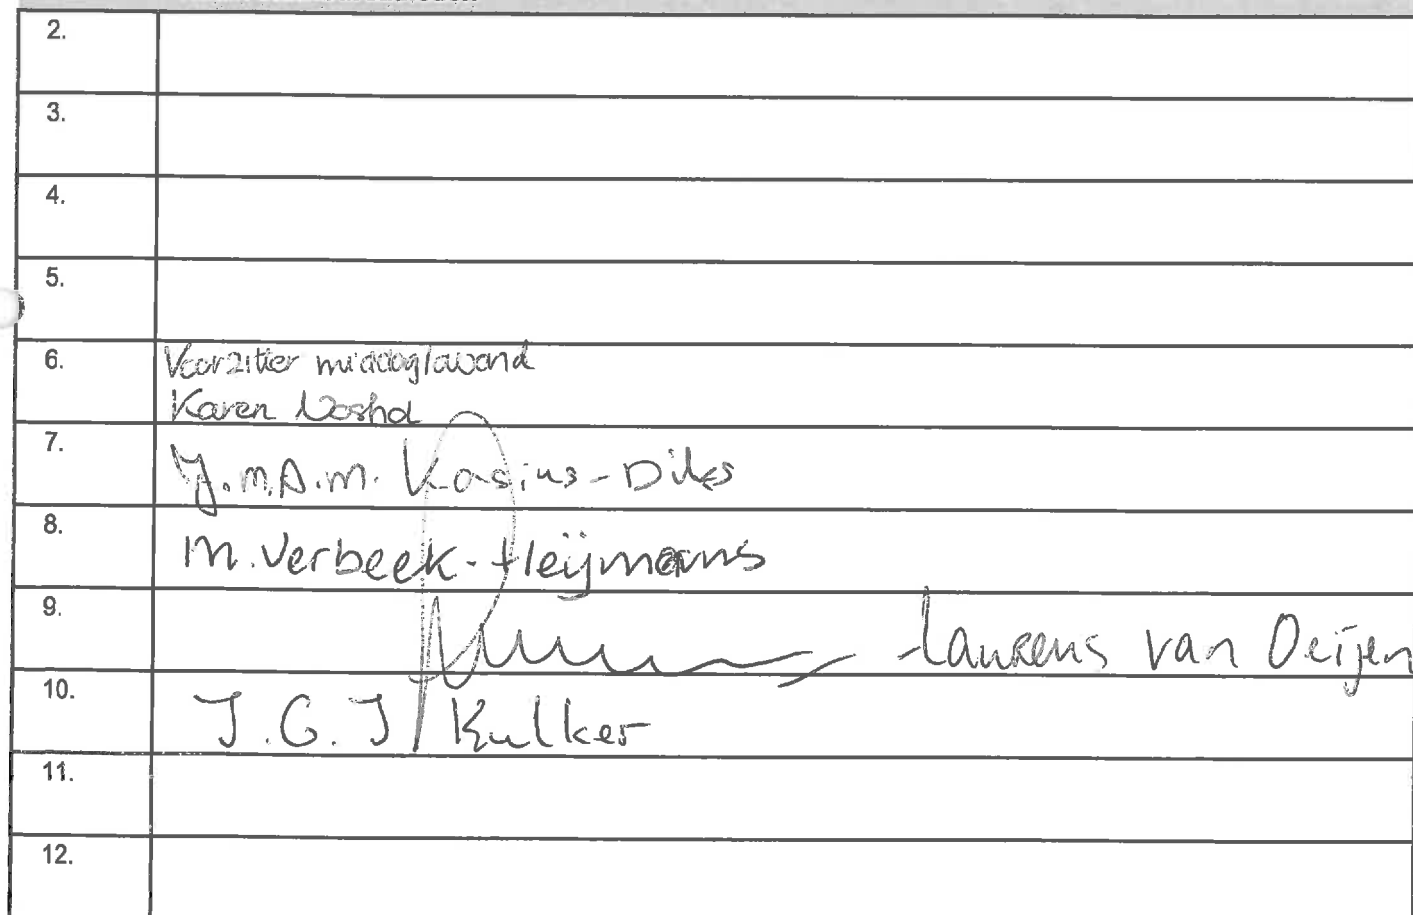 2.
3.
4.
5.
6. Voorzitter middag/avond
Karen
7. J.M.A.M. Kasius-Dilks
8. M. Verbeek-Heijmans
9. Laurens van Deijen
10. J.G.J. Kulker
11.
12.